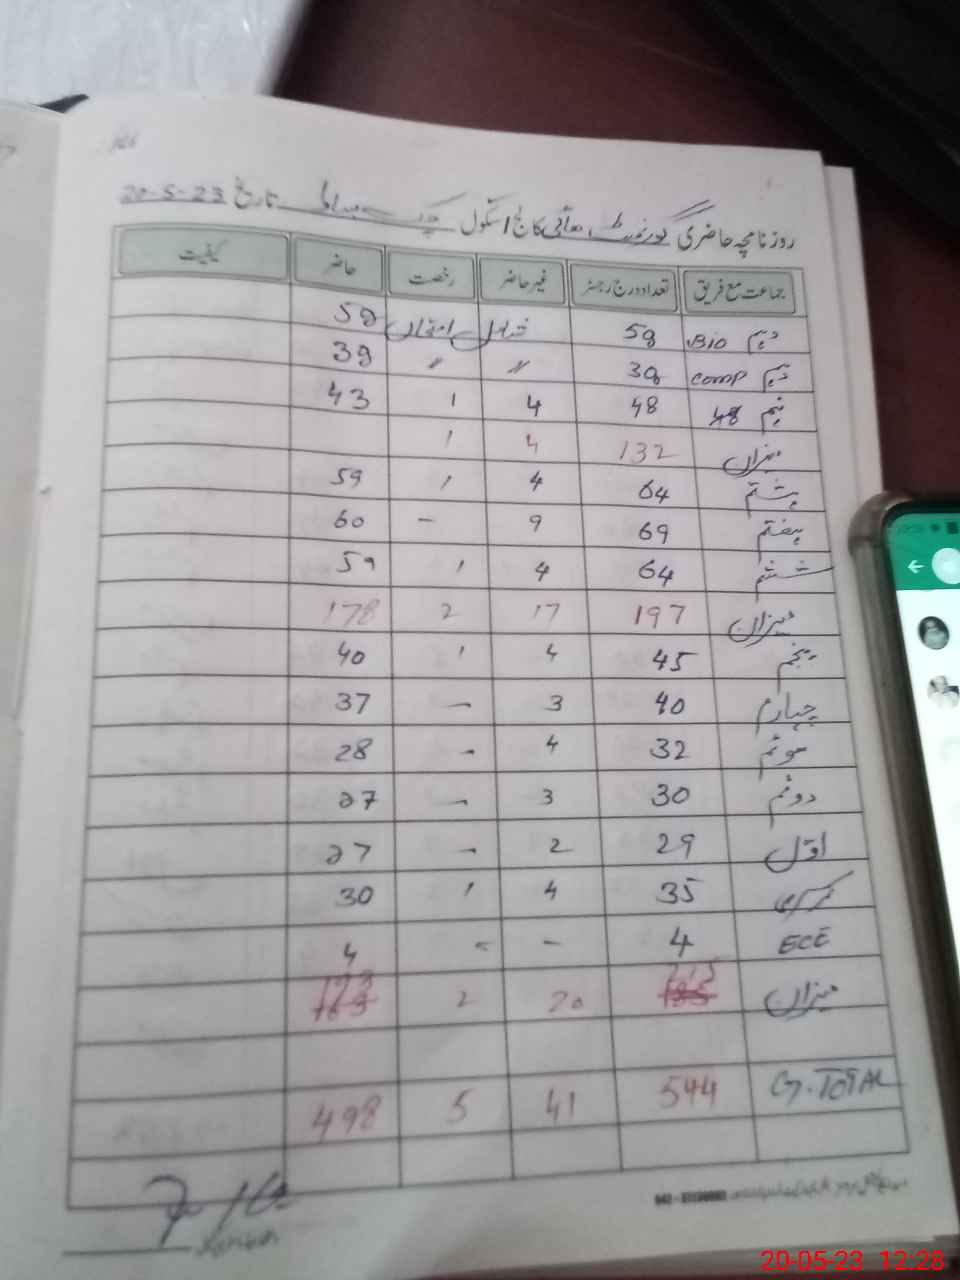 روزنامچہ حاضری گورنمنٹ ہائی کالج/سکول تاریخ 20-5-23
جماعت مع فریق تعداد درج رجسٹر غیر حاضر رخصت حاضر کیفیت
دہم Bio 59 شامل امتحان 59
دہم comp 39 〃 〃 39
نہم 48 48 4 1 43
میزان 132 4 1
ہشتم 64 4 1 59
ہفتم 69 9 - 60
ششم 64 4 1 59
میزان 197 17 2 178
پنجم 45 4 1 40
چہارم 40 3 - 37
سوئم 32 4 - 28
دوئم 30 3 - 27
اول 29 2 - 27
نرسری 35 4 1 30
ECE 4 - - 4
میزان 215 20 2 193
G.TOTAL 544 41 5 498
20-05-23 12:28